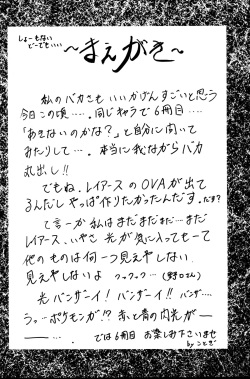 しょーもない
どーでもいい
～まえがき～
私のバカさも いいかげんすごいと思う
今日この頃‥‥。同じキャラで6冊目‥‥
「あきないのかな?」と自分に問いて
みたりして‥‥。本当に我ながらバカ
丸出し!!
でもね。レイアースのOVAが出て
るんだし やっぱ作りたかったんだす。だす?
て言ーか 私はまだまだまだ‥‥まだ
レイアース‥、いやさ 光が気に入ってもーて
他のものは何一つ見えやしない
見えやしないよ フゥーフゥー‥‥
光バンザーイ! バンザーイ!! バンザ‥‥
う。‥ポケモンが!? 赤と青の閃光が‥‥
では6冊目 お楽しみ下さいませ
by